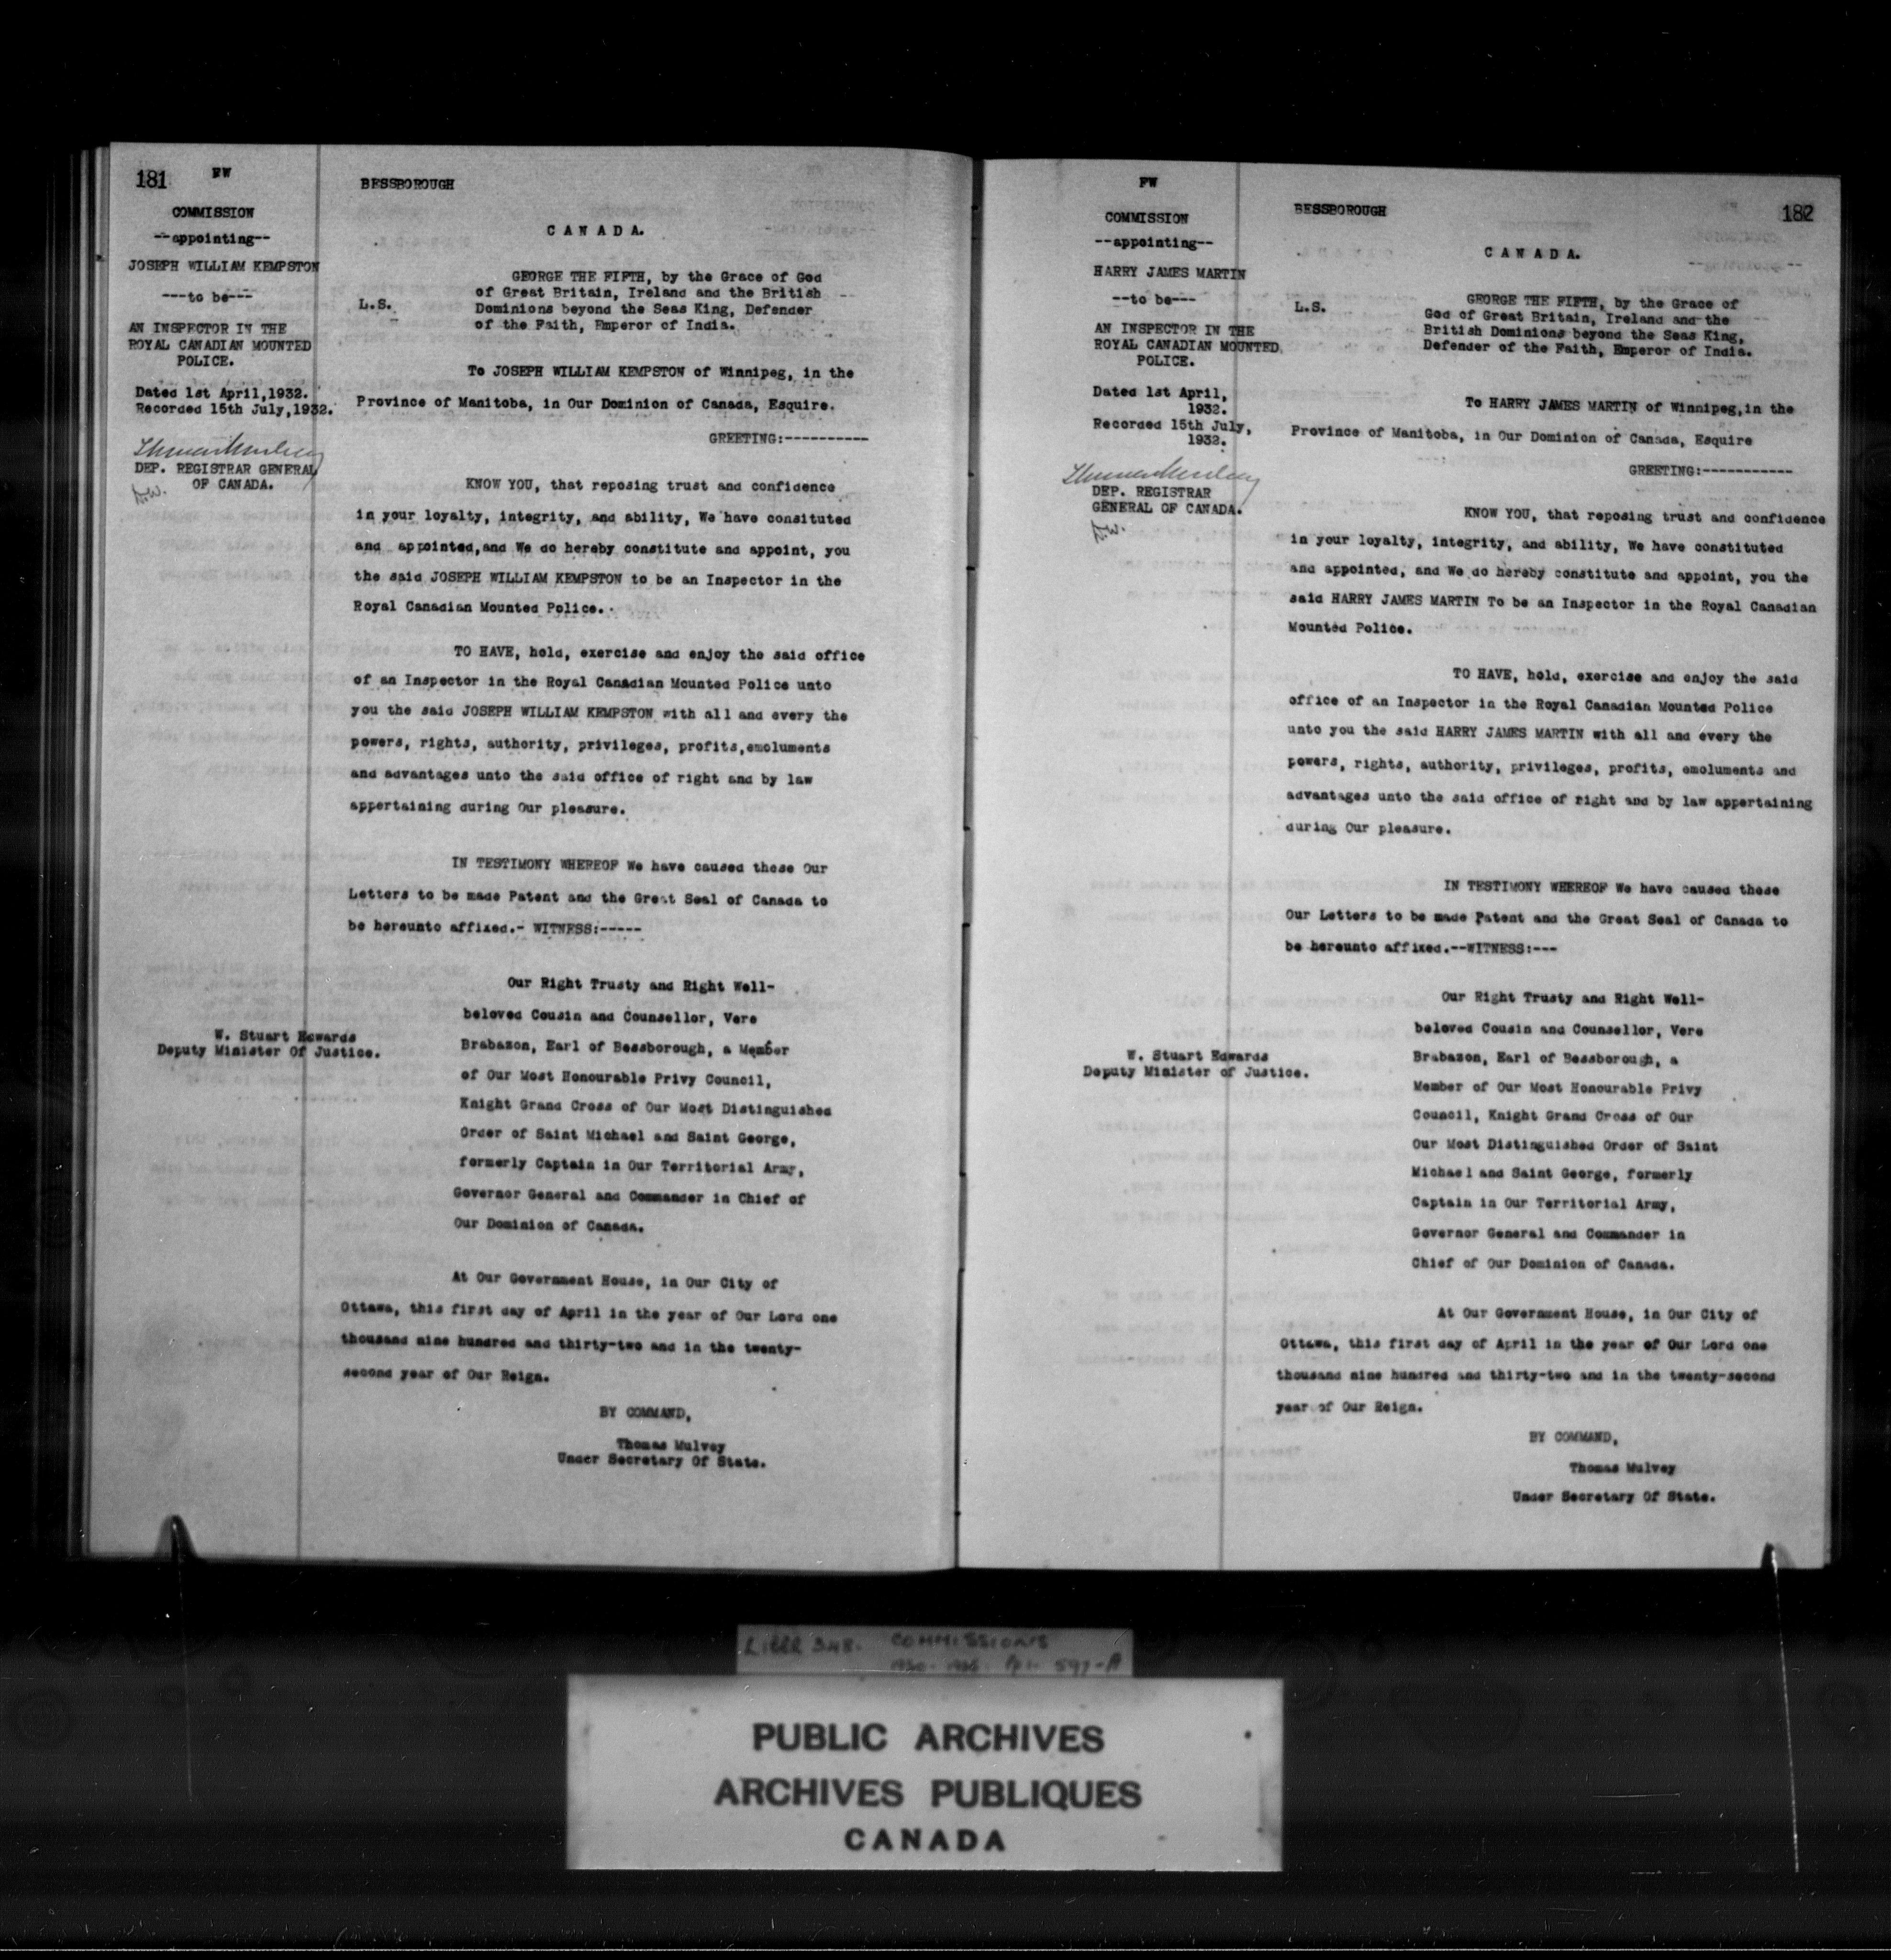 181
FW
COMMISSION
--appointing--
JOSEPH WILLIAM KEMPSTON
---to be---
AN INSPECTOR IN THE
ROYAL CANADIAN MOUNTED
POLICE.
Dated 1st April,1932.
Recorded 15th July,1932.
Thomas Mulvey
DEP. REGISTRAR GENERAL
OF CANADA.
W. Stuart Edwards
Deputy Minister Of Justice.
BESSBOROUGH
C A N A D A.
L.S.
GEORGE THE FIFTH, by the Grace of God
of Great Britain, Ireland and the British
Dominions beyond the Seas King, Defender
of the Faith, Emperor of India.
To JOSEPH WILLIAM KEMPSTON of Winnipeg, in the
Province of Manitoba, in Our Dominion of Canada, Esquire.
GREETING:----------
KNOW YOU, that reposing trust and confidence
in your loyalty, integrity, and ability, We have consituted
and appointed,and We do hereby constitute and appoint, you
the said JOSEPH WILLIAM KEMPSTON to be an Inspector in the
Royal Canadian Mounted Police.
TO HAVE, hold, exercise and enjoy the said office
of an Inspector in the Royal Canadian Mounted Police unto
you the said JOSEPH WILLIAM KEMPSTON with all and every the
powers, rights, authority, privileges, profits,emoluments
and advantages unto the said office of right and by law
appertaining during Our pleasure.
IN TESTIMONY WHEREOF We have caused these Our
Letters to be made Patent and the Great Seal of Canada to
be hereunto affixed.- WITNESS:-----
Our Right Trusty and Right Well-
beloved Cousin and Counsellor, Vere
Brabazon, Earl of Bessborough, a Member
of Our Most Honourable Privy Council,
Knight Grand Cross of Our Most Distinguished
Order of Saint Michael and Saint George,
formerly Captain in Our Territorial Army,
Governor General and Commander in Chief of
Our Dominion of Canada.
At Our Government House, in Our City of
Ottawa, this first day of April in the year of Our Lord one
thousand nine hundred and thirty-two and in the twenty-
second year of Our Reign.
BY COMMAND,
Thomas Mulvey
Under Secretary Of State.
182
FW
COMMISSION
--appointing--
HARRY JAMES MARTIN
--to be---
AN INSPECTOR IN THE
ROYAL CANADIAN MOUNTED
POLICE.
Dated 1st April,
1932.
Recorded 15th July,
1932.
Thomas Mulvey
DEP. REGISTRAR
GENERAL OF CANADA.
W. Stuart Edwards
Deputy Minister of Justice.
BESSBOROUGH
C A N A D A.
L.S.
GEORGE THE FIFTH, by the Grace of
God of Great Britain, Ireland and the
British Dominions beyond the Seas King,
Defender of the Faith, Emperor of India.
To HARRY JAMES MARTIN of Winnipeg,in the
Province of Manitoba, in Our Dominion of Canada, Esquire
GREETING:-----------
KNOW YOU, that reposing trust and confidence
in your loyalty, integrity, and ability, We have constituted
and appointed, and We do hereby constitute and appoint, you the
said HARRY JAMES MARTIN To be an Inspector in the Royal Canadian
Mounted Police.
TO HAVE, hold, exercise and enjoy the said
office of an Inspector in the Royal Canadian Mounted Police
unto you the said HARRY JAMES MARTIN with all and every the
powers, rights, authority, privileges, profits, emoluments and
advantages unto the said office of right and by law appertaining
during Our pleasure.
IN TESTIMONY WHEREOF We have caused these
Our Letters to be made Patent and the Great Seal of Canada to
be hereunto affixed.--WITNESS:---
Our Right Trusty and Right Well-
beloved Cousin and Counsellor, Vere
Brabazon, Earl of Bessborough, a
Member of Our Most Honourable Privy
Council, Knight Grand Cross of Our
Our Most Distinguished Order of Saint
Michael and Saint George, formerly
Captain in Our Territorial Army,
Governor General and Commander in
Chief of Our Dominion of Canada.
At Our Government House, in Our City of
Ottawa, this first day of April in the year of Our Lord one
thousand nine hundred and thirty-two and in the twenty-second
year of Our Reign.
BY COMMAND,
Thomas Mulvey
Under Secretary Of State.
LIBER 348. COMMISSIONS
597-A
PUBLIC ARCHIVES
ARCHIVES PUBLIQUES
CANADA